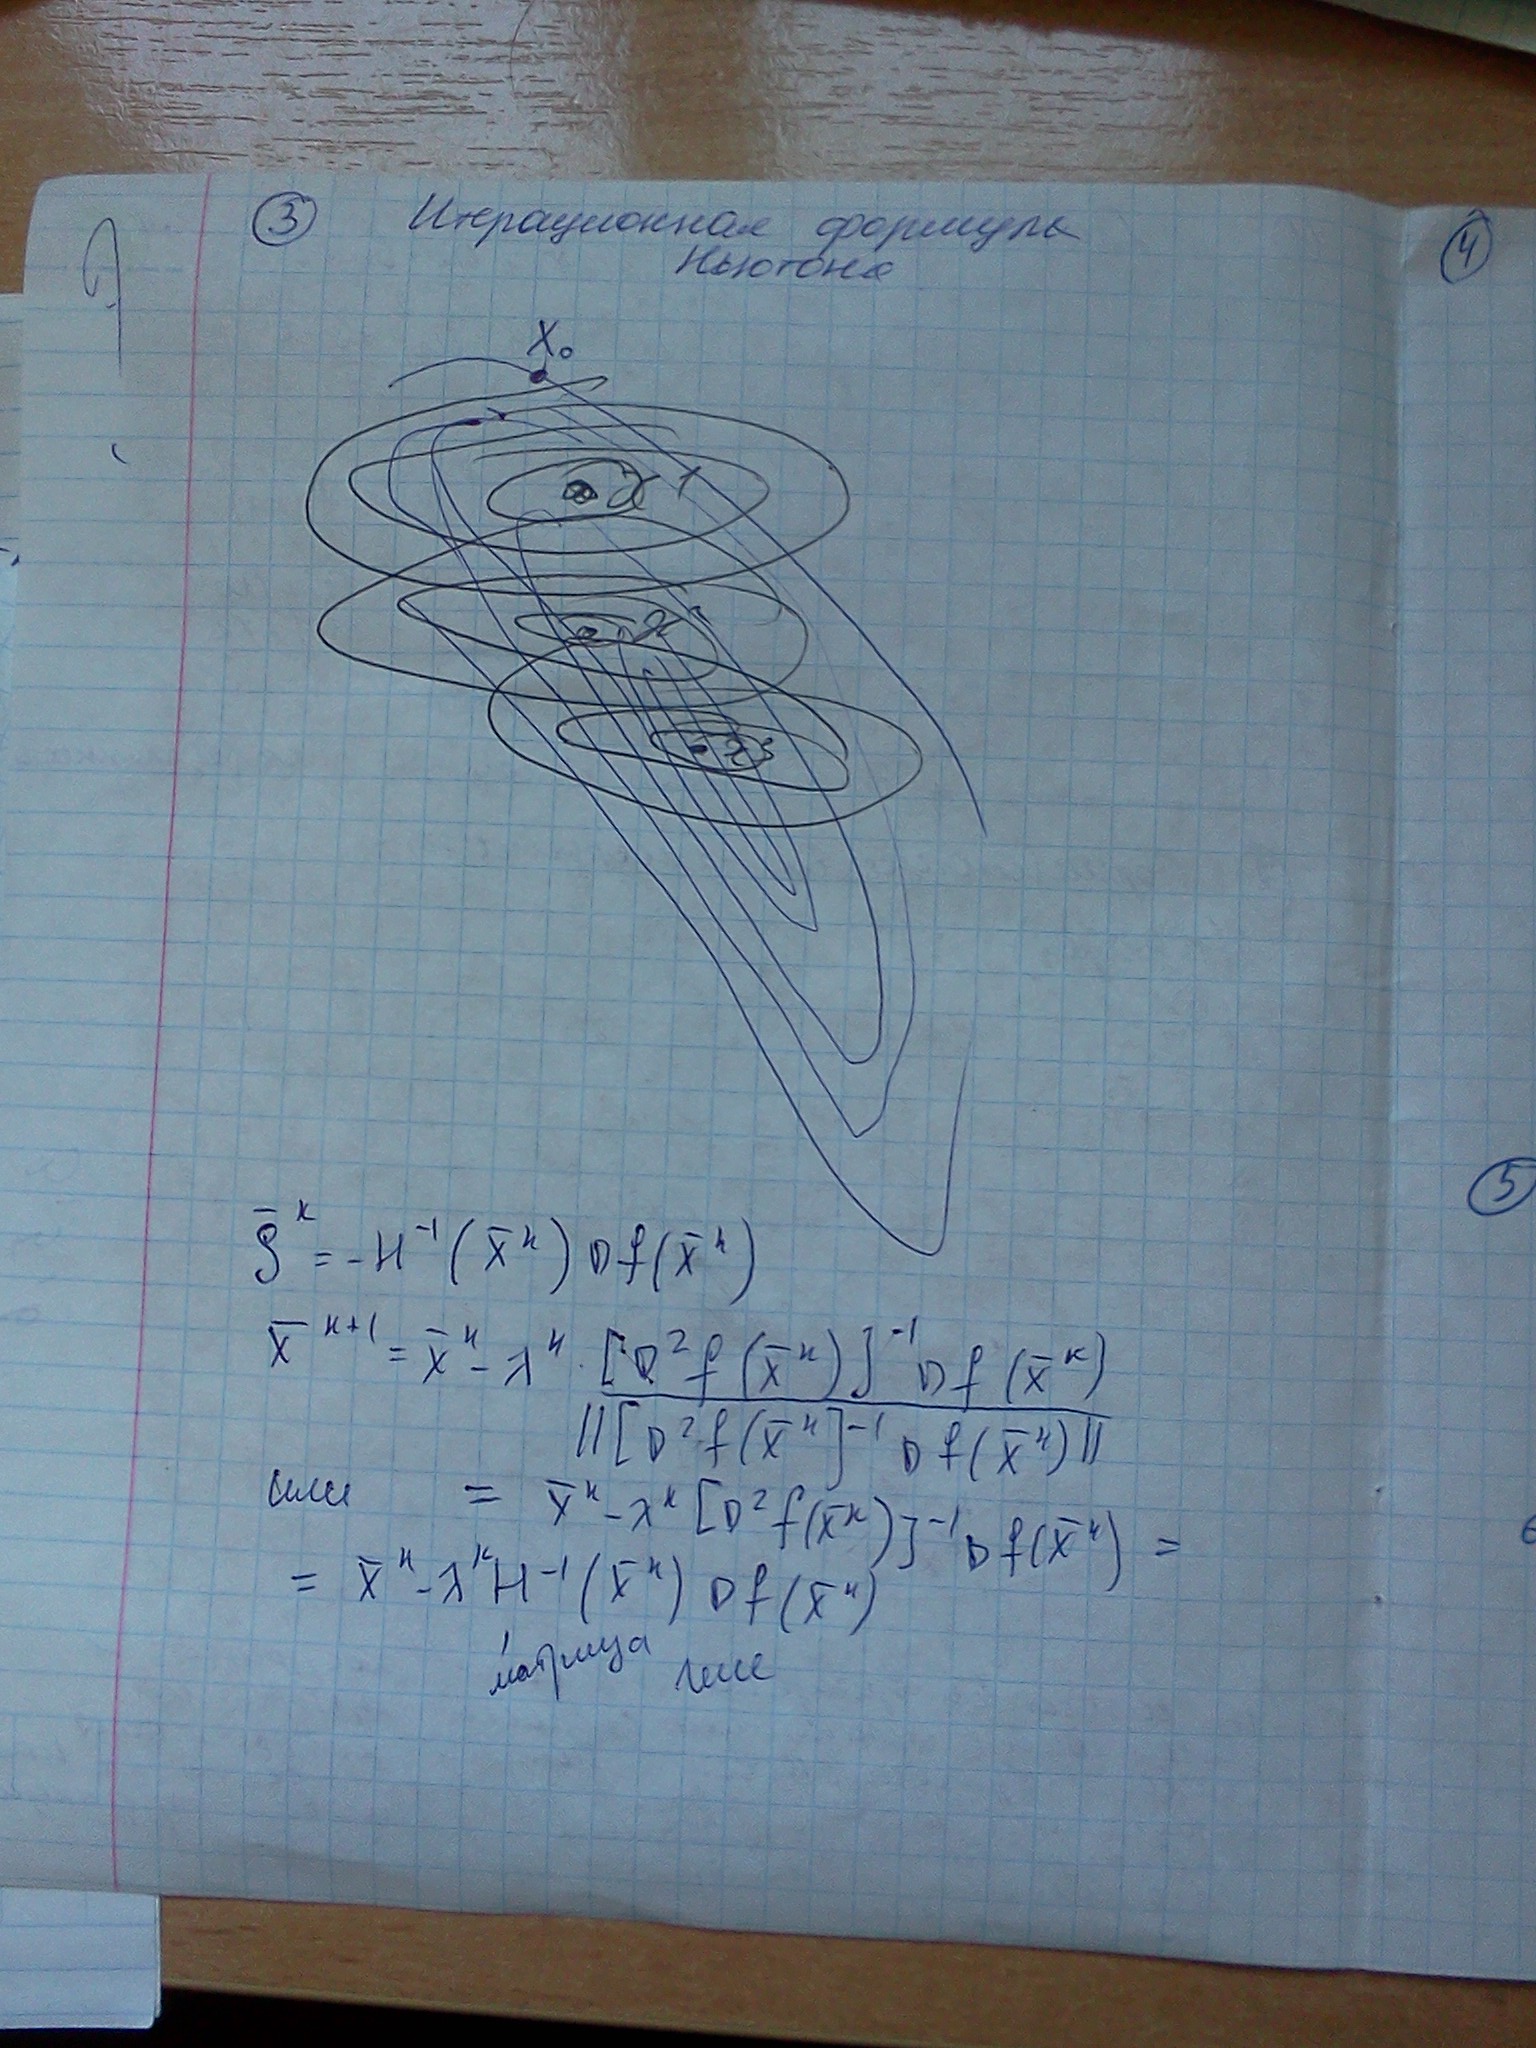 ③ Итерационная формула
Ньютона
④
X₀
x1
x2
x3
⑤
S̄ᵏ = -H⁻¹(x̄ᵏ) Df(x̄ᵏ)
x̄ᵏ⁺¹ = x̄ᵏ - λᵏ · [D²f(x̄ᵏ)]⁻¹ Df(x̄ᵏ)
||[D²f(x̄ᵏ]⁻¹ Df(x̄ᵏ)||
или = x̄ᵏ - λᵏ [D²f(x̄ᵏ)]⁻¹ Df(x̄ᵏ) =
= x̄ᵏ - λᵏ H⁻¹(x̄ᵏ) Df(x̄ᵏ)
матрица гессе